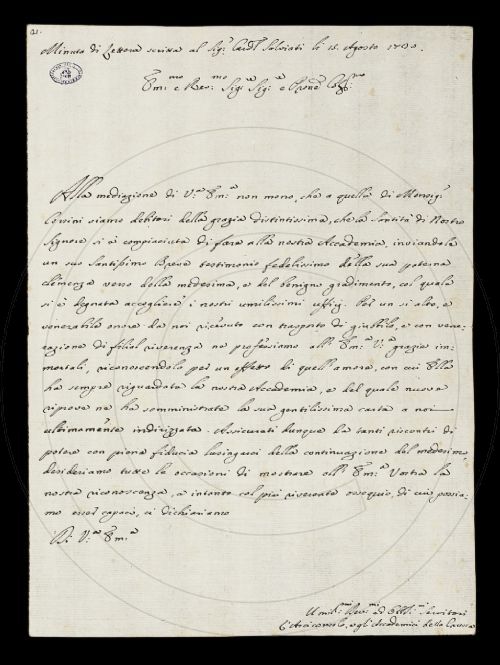 Minuta di Lettera scritta al Sig.r Card.l Salviati li 15. Agosto
Em.mo e Rev.mo Sig.re Sig.re e Pron.e Col.mo
Alla mediazione di V.a Em.a non meno, che a quella di Monsig.r
Corsini siamo debitori della grazia distintissima, che la Santità di Nostro
Signore si è compiaciuta di fare alla nostra Accademia, inviandole
un suo Santissimo Breve testimonio fedelissimo della sua paterna
clemenza verso della medesima, e del benigno gradimento, col quale
si è degnata accogliere i nostri umilissimi uffizj. Per un si alto, e
venerabile onore da noi ricevuto con trasporto di giubbilo, e con vene-
razione di filial riverenza ne professiamo all' Em.a V.a grazie im-
mortali, riconoscendolo per un effetto di quell' amore, con cui Ella
ha sempre riguardata la nostra Accademia, e del quale nuova
riprova ne ha somministrata la sua gentilissima carta a noi
ultimamente indirizzata. Assicurati dunque da tanti riscontri di
potere con piena fiducia lusingarci della continuazione del medesimo,
desideriamo tutte le occasioni di mostrare all' Em.a Vostra la
nostra riconoscenza, e intanto col più riverente ossequio, di cui possia-
mo esser capaci, ci dichiariamo
Di V.a Em.a
Umil.mi Dev.mi ed Obbl.mi Servitori
L'Arciconsolo, e gli Accademici della Crusca